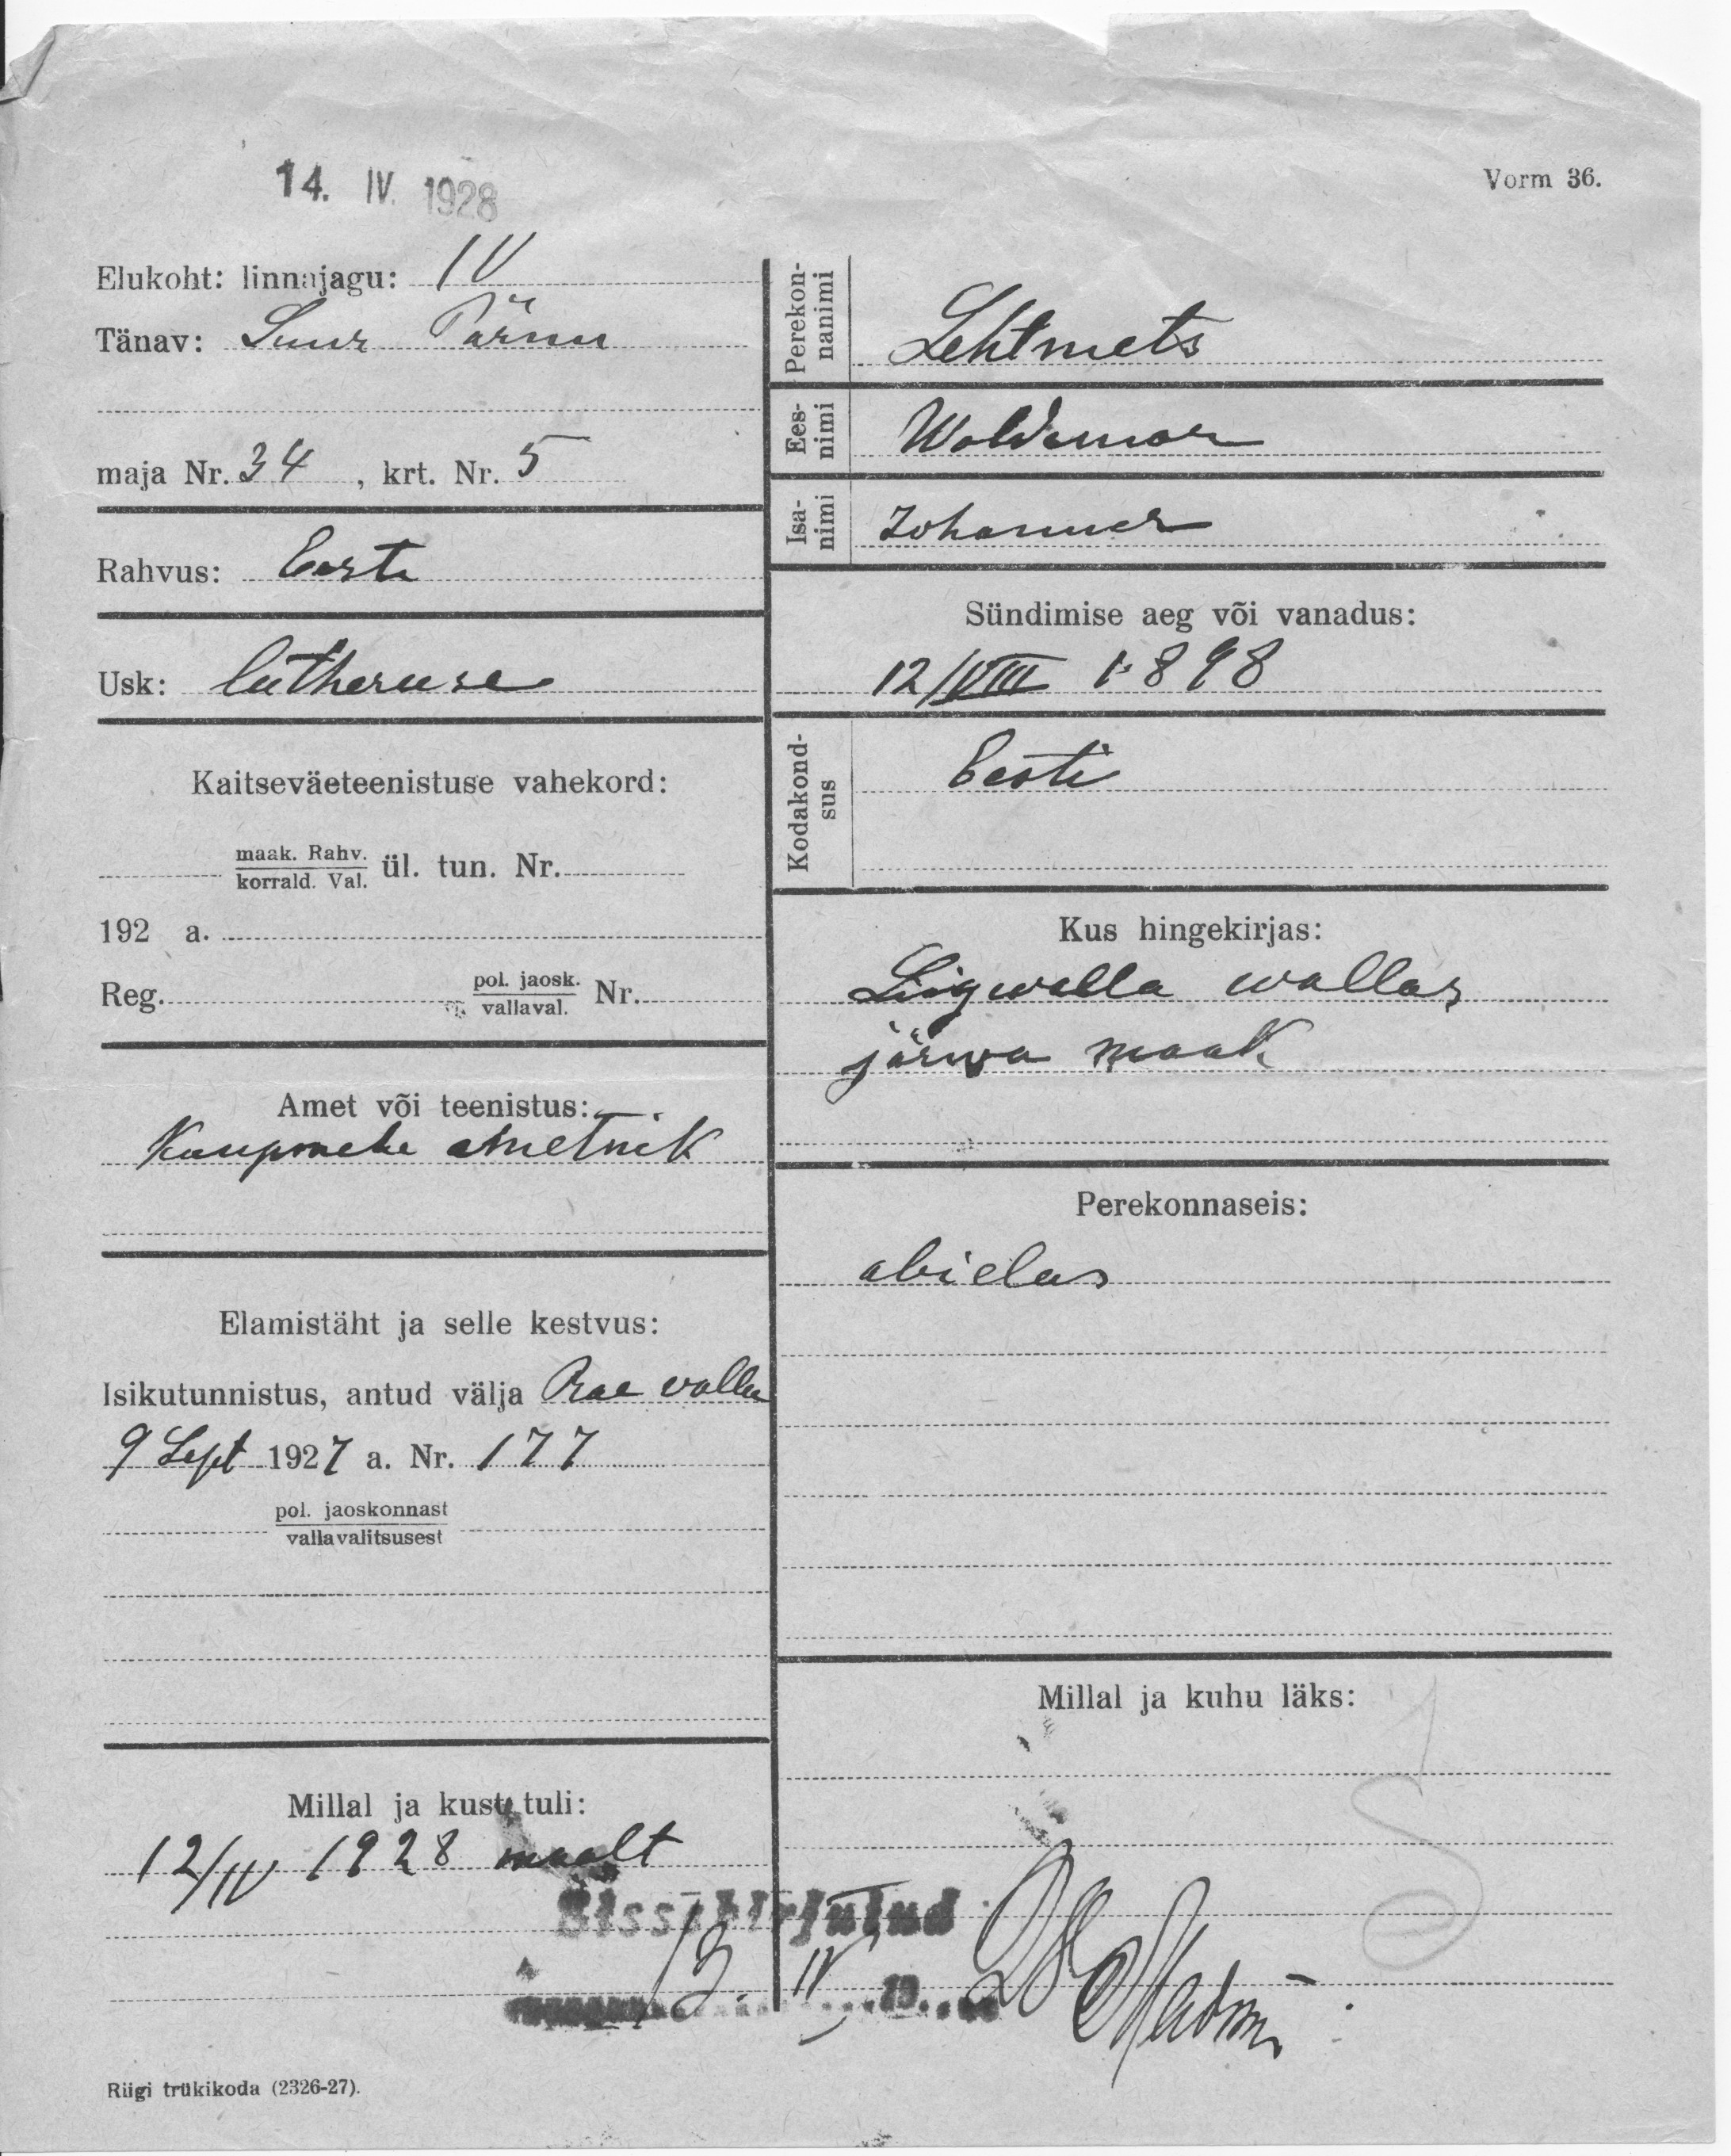 14. IV. 1928
Vorm 36.
Elukoht: linnajagu: IV
Tänav: Suur Pärnu
maja Nr. 34, krt. Nr. 5
Rahvus: Eesti
Usk: lutheruse
Kaitseväeteenistuse vahekord:
maak. Rahv.
korrald. Val. ül. tun. Nr.
192 a.
Reg. pol. jaosk.
vallaval. Nr.
Amet või teenistus:
Kaupmehe ametnik
Elamistäht ja selle kestvus:
Isikutunnistus, antud välja Rae vallu
9 Sept 1927 a. Nr. 177
pol. jaoskonnast
vallavalitsusest
Millal ja kust tuli:
12/IV 1928 maalt
Perekon-
nanimi
Lehtmets
Ees-
nimi
Woldemar
Isa-
nimi
Johannes
Sündimise aeg või vanadus:
12/VIII 1898
Kodakond-
sus
Eesti
Kus hingekirjas:
Liigwalla wallas
järwa maak
Perekonnaseis:
abielus
Millal ja kuhu läks:
Sissekirjutud
13. IV 19 28
Riigi trükikoda (2326-27).